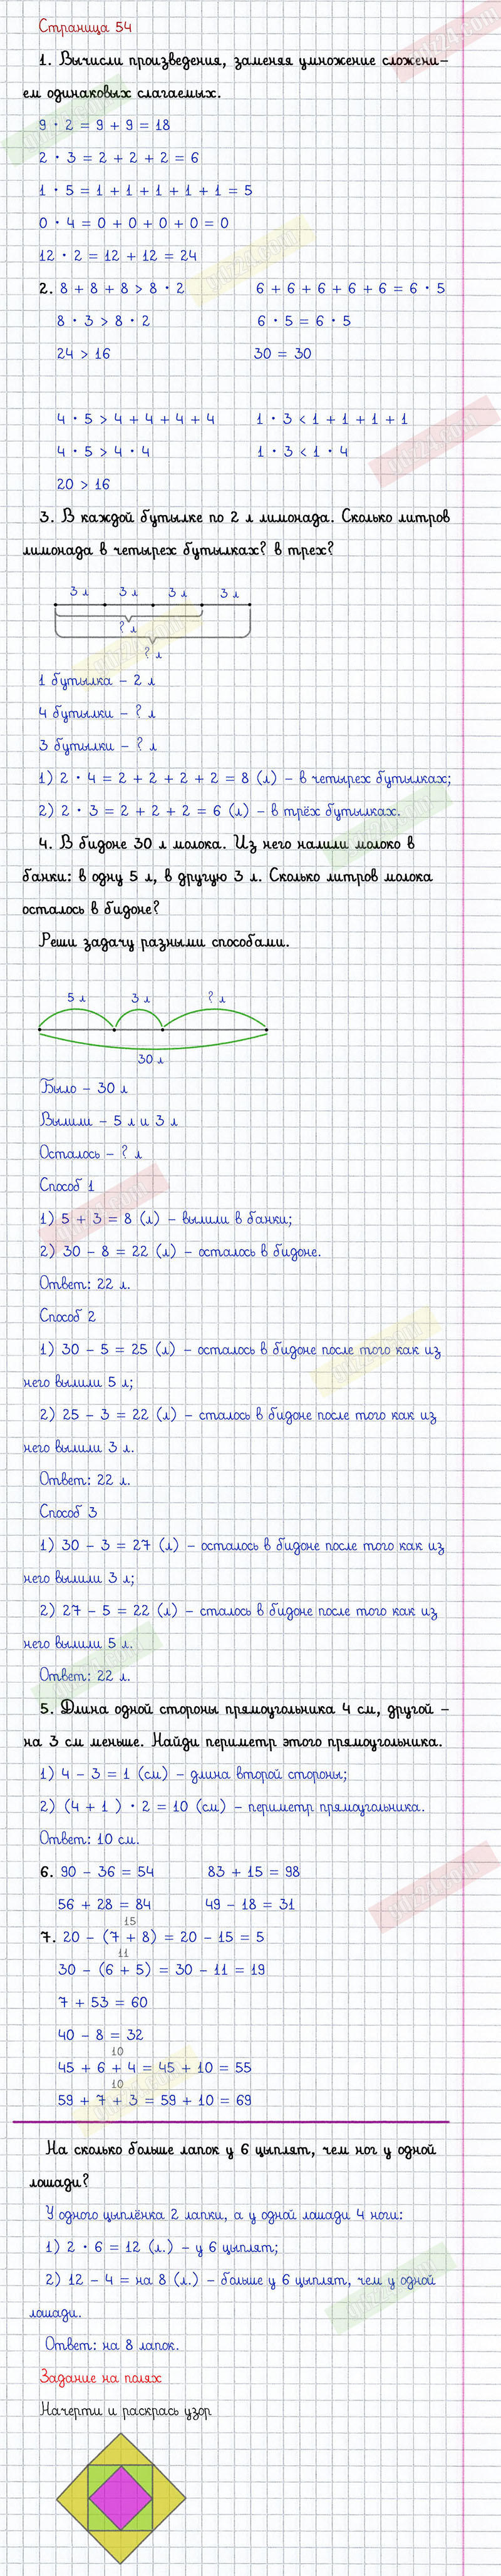 Страница 54
1. Вычисли произведения, заменяя умножение сложени-
ем одинаковых слагаемых.
9 · 2 = 9 + 9 = 18
2 · 3 = 2 + 2 + 2 = 6
1 · 5 = 1 + 1 + 1 + 1 + 1 = 5
0 · 4 = 0 + 0 + 0 + 0 = 0
12 · 2 = 12 + 12 = 24
2. 8 + 8 + 8 > 8 · 2 6 + 6 + 6 + 6 + 6 = 6 · 5
8 · 3 > 8 · 2 6 · 5 = 6 · 5
24 > 16 30 = 30
4 · 5 > 4 + 4 + 4 + 4 1 · 3 < 1 + 1 + 1 + 1
4 · 5 > 4 · 4 1 · 3 < 1 · 4
20 > 16
3. В каждой бутылке по 2 л лимонада. Сколько литров
лимонада в четырех бутылках? в трех?
3 л 3 л 3 л 3 л
? л
? л
1 бутылка – 2 л
4 бутылки – ? л
3 бутылки – ? л
1) 2 · 4 = 2 + 2 + 2 + 2 = 8 (л) – в четырех бутылках;
2) 2 · 3 = 2 + 2 + 2 = 6 (л) – в трёх бутылках.
4. В бидоне 30 л молока. Из него налили молоко в
банки: в одну 5 л, в другую 3 л. Сколько литров молока
осталось в бидоне?
Реши задачу разными способами.
5 л 3 л ? л
30 л
Было – 30 л
Вылили – 5 л и 3 л
Осталось – ? л
Способ 1
1) 5 + 3 = 8 (л) – вылили в банки;
2) 30 – 8 = 22 (л) – осталось в бидоне.
Ответ: 22 л.
Способ 2
1) 30 – 5 = 25 (л) – осталось в бидоне после того как из
него вылили 5 л;
2) 25 – 3 = 22 (л) – сталось в бидоне после того как из
него вылили 3 л.
Ответ: 22 л.
Способ 3
1) 30 – 3 = 27 (л) – осталось в бидоне после того как из
него вылили 3 л;
2) 27 – 5 = 22 (л) – сталось в бидоне после того как из
него вылили 5 л.
Ответ: 22 л.
5. Длина одной стороны прямоугольника 4 см, другой –
на 3 см меньше. Найди периметр этого прямоугольника.
1) 4 – 3 = 1 (см) – длина второй стороны;
2) (4 + 1 ) · 2 = 10 (см) – периметр прямоугольника.
Ответ: 10 см.
6. 90 – 36 = 54 83 + 15 = 98
56 + 28 = 84 49 – 18 = 31
15
7. 20 – (7 + 8) = 20 – 15 = 5
11
30 – (6 + 5) = 30 – 11 = 19
7 + 53 = 60
40 – 8 = 32
10
45 + 6 + 4 = 45 + 10 = 55
10
59 + 7 + 3 = 59 + 10 = 69
На сколько больше лапок у 6 цыплят, чем ног у одной
лошади?
У одного цыплёнка 2 лапки, а у одной лошади 4 ноги:
1) 2 · 6 = 12 (л.) – у 6 цыплят;
2) 12 – 4 = на 8 (л.) – больше у 6 цыплят, чем у одной
лошади.
Ответ: на 8 лапок.
Задание на полях
Начерти и раскрась узор